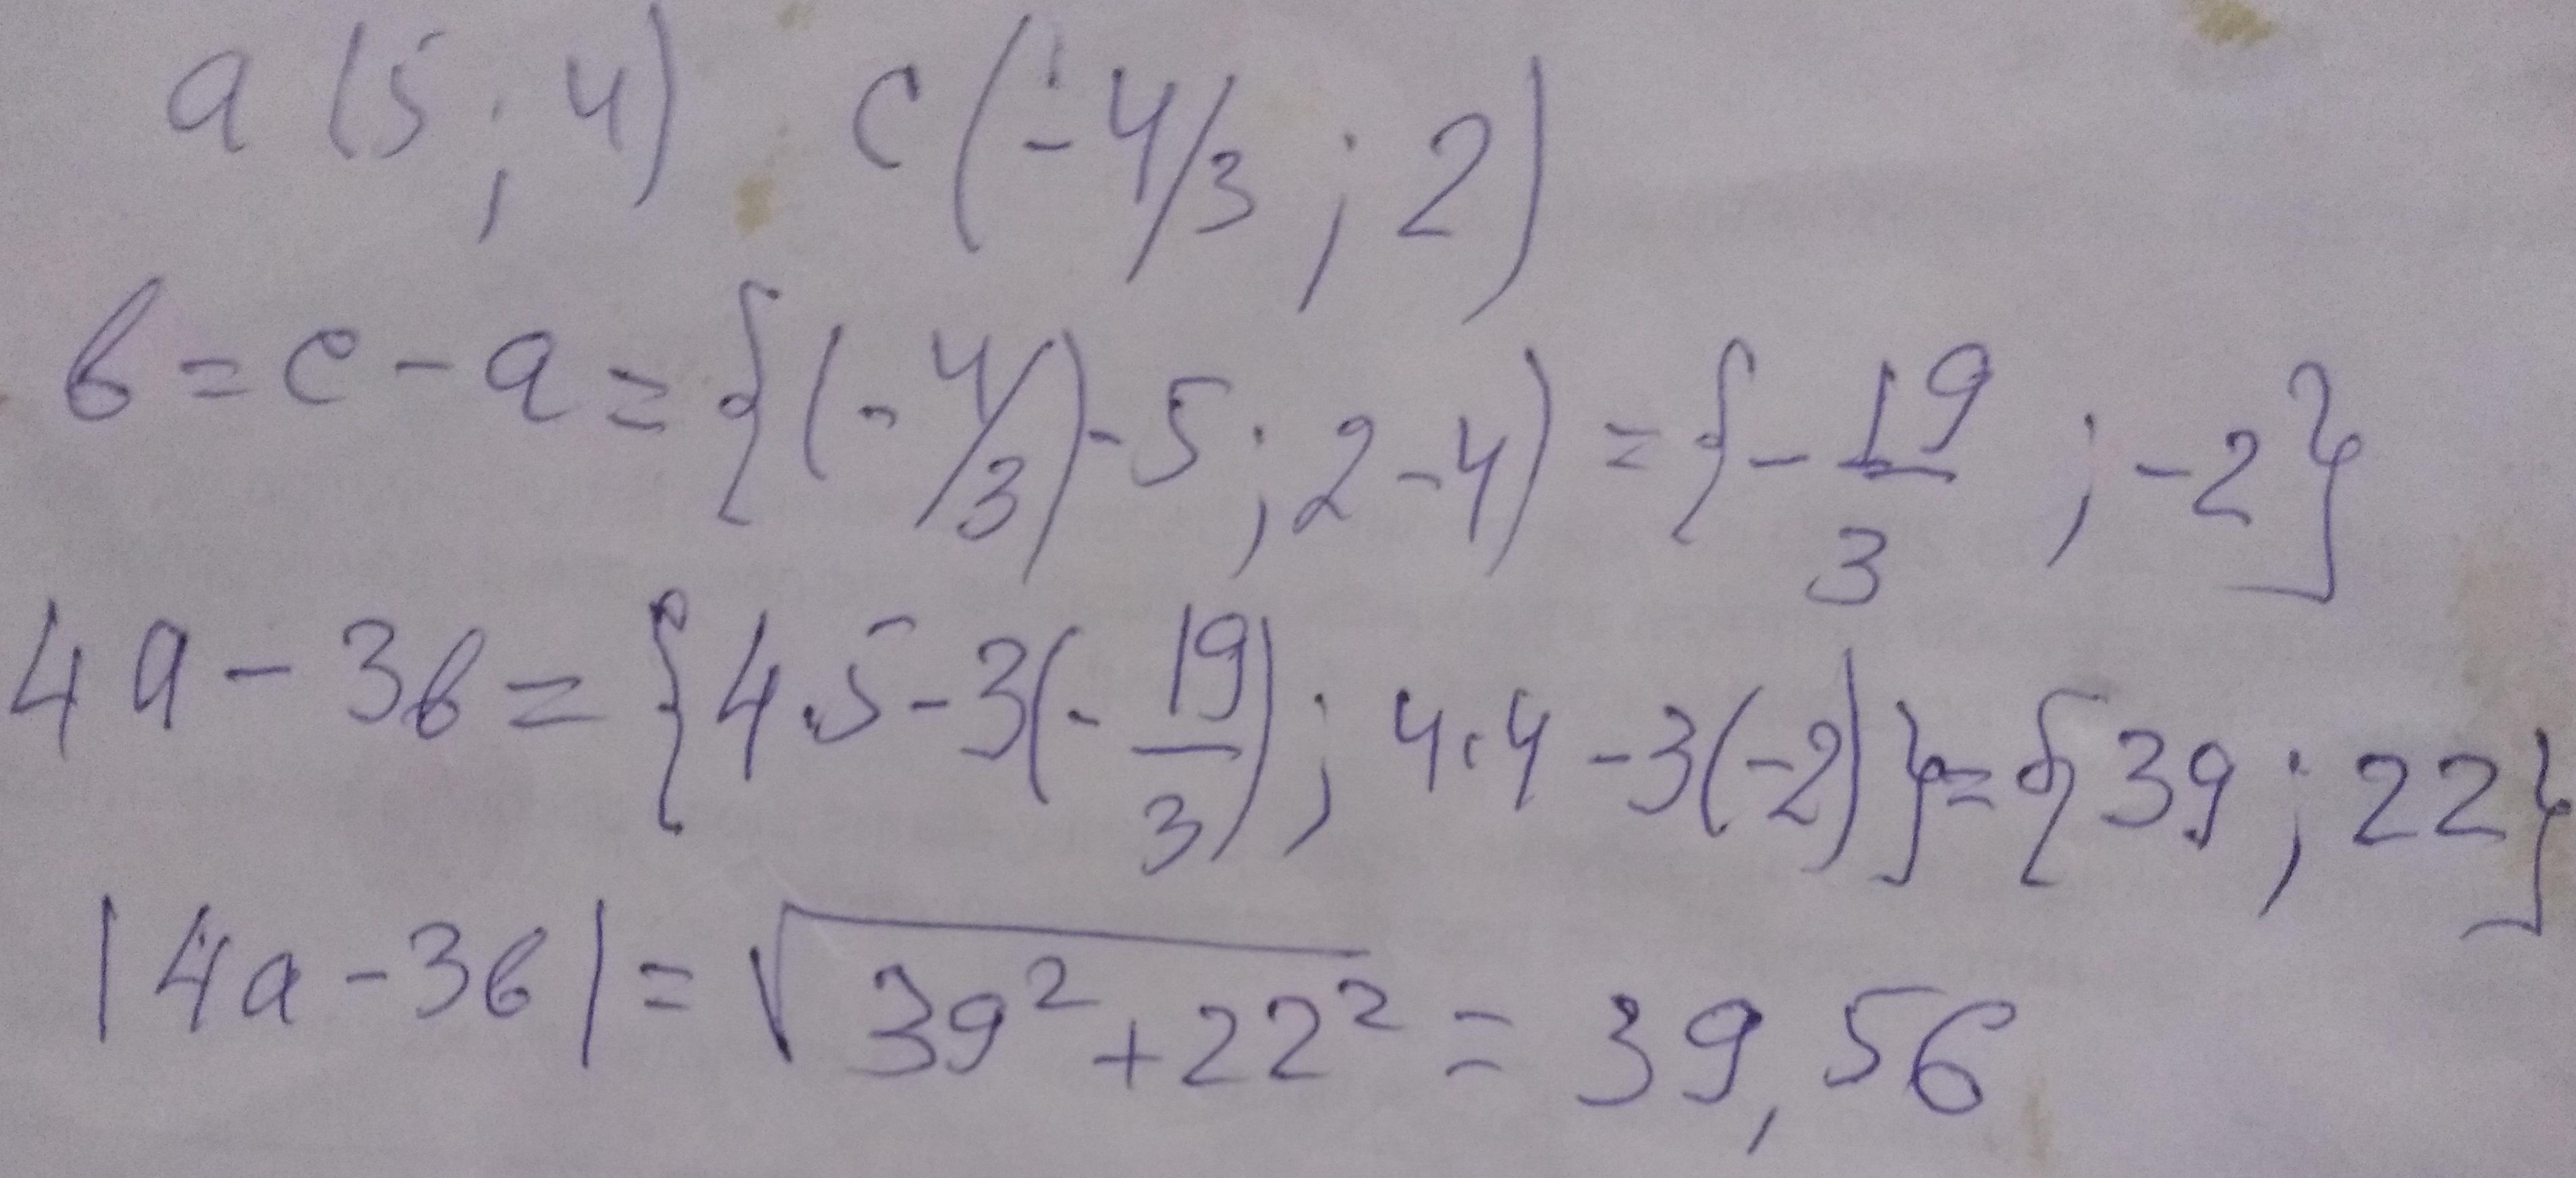 a (5 ; 4) c (-4/3 ; 2)
в = c - a = {(-4/3) - 5 ; 2 - 4) = {- 19/3 ; -2}
4a - 3в = {4.5 - 3(- 19/3) ; 4.4 - 3(-2)} = {39 ; 22}
|4a - 3в| = √39² + 22² = 39,56